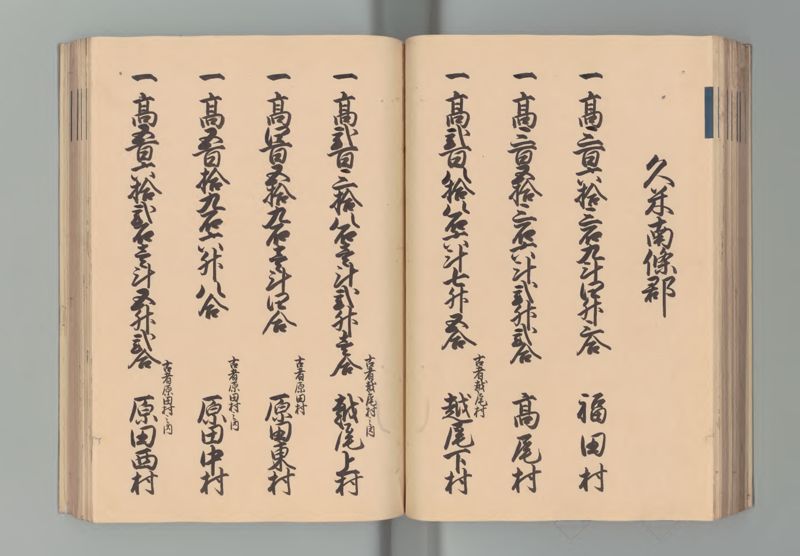 久米南條郡
一 高三百六拾三石九斗四升六合 福田村
一 高三百五拾三石六斗弐升弐合 高尾村
古者越尾村
一 高弐百八拾八石六斗七升五合 越尾下村
古者越尾村之内
一 高弐百三拾八石壱斗弐升壱合 越尾上村
古者原田村
一 高四百五拾九石壱斗四合 原田東村
古者原田村之内
一 高五百拾九石六升八合 原田中村
古者原田村之内
一 高五百六拾弐石壱斗五升弐合 原田西村